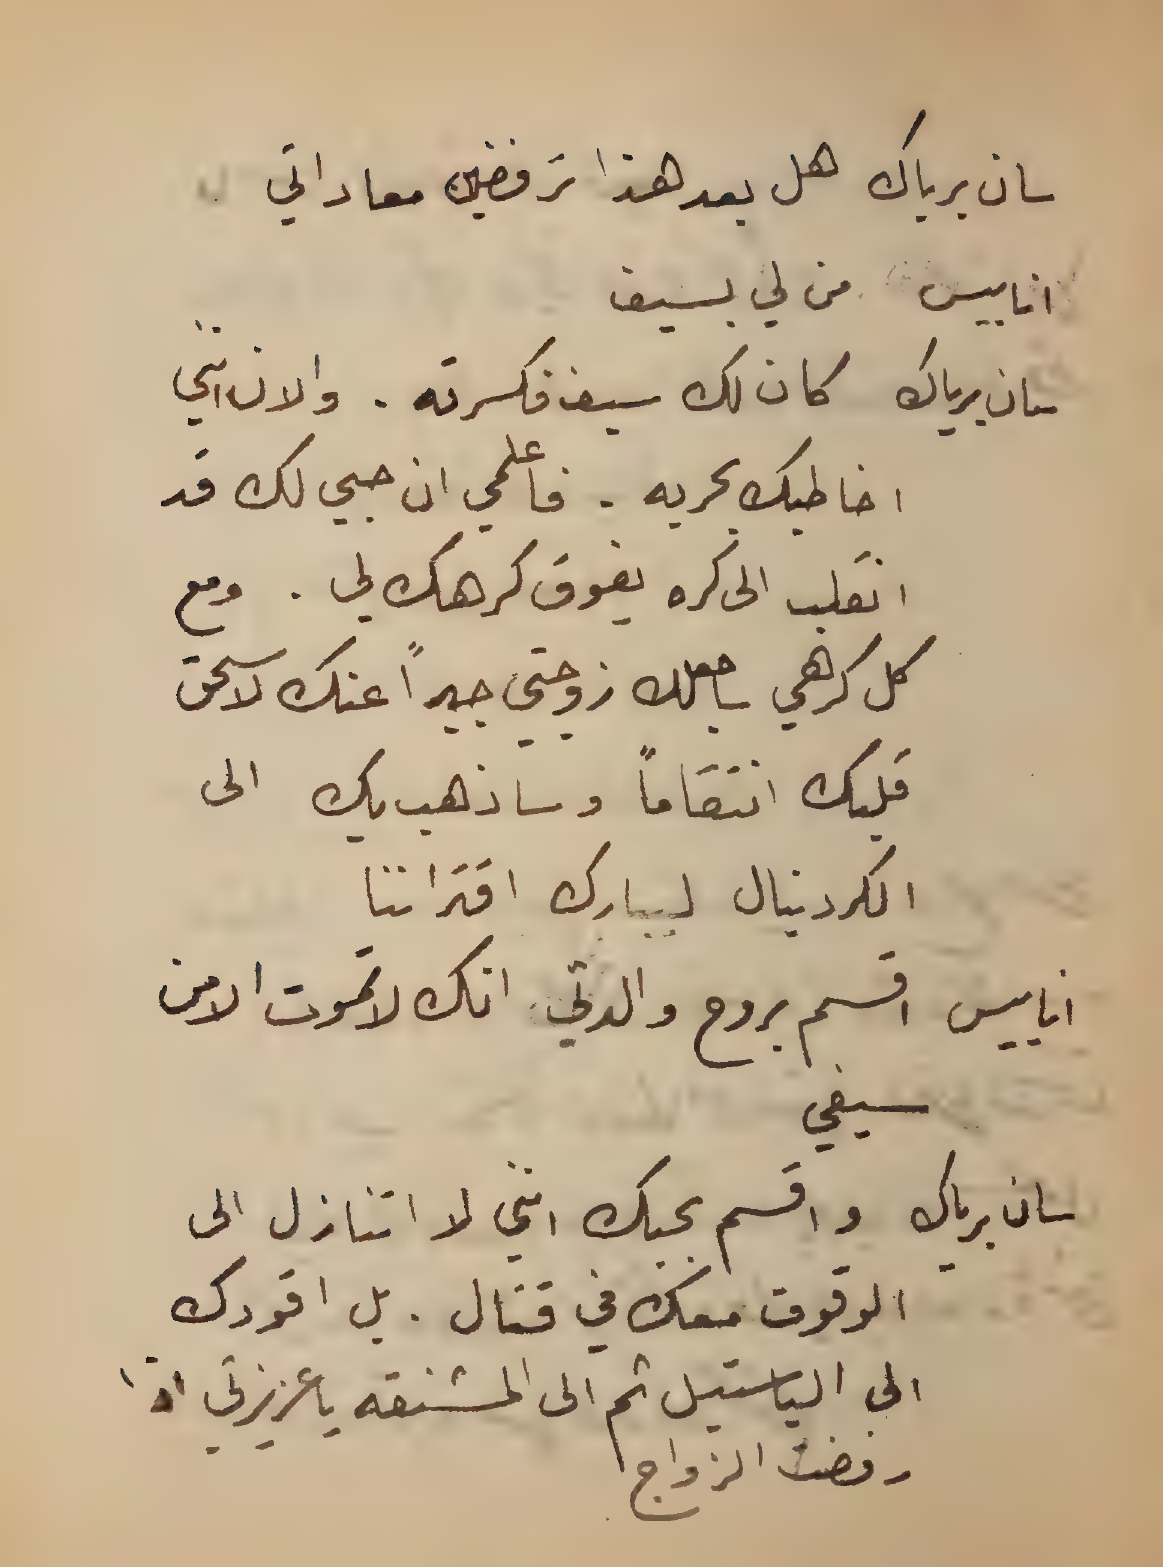 سان برياك هل بعد هذا ترفضين معاداتي
اناييس من لي بسيف
سان برياك كان لك سيف فكسرته . والان انني
اخاطبك بحريه . فاعلمي ان حبي لك قد
انقلب الى كره يفوق كرهك لي . ومع
كل كرهي ساجعلك زوجتي جبراً عنك لاسحق
قلبك انتقاماً وساذهب بك الى
الكردينال ليبارك اقتراننا
اناييس اقسم بروح والدتي انك لا تموت الا من
سيفي
سان برياك واقسم بحبك انني لا اتنازل الى
الوقوف معك في قتال . بل اقودك
الى الباستيل ثم الى المشنقه يا عزيزتي اذا
رفضت الزواج